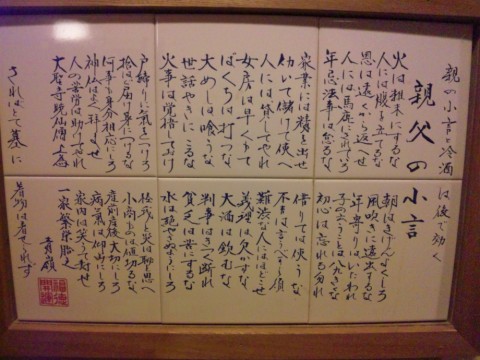 親の小言と冷酒は後で効く
親父の小言
火は粗末にするな
朝はきげんよくしろ
人には腹を立てるな
風吹きに遠出するな
恩は遠くから返せ
年寄りはいたわれ
人には馬鹿にされていろ
子のいうことは八九きくな
年忌法事は怠るな
初心は忘れる勿れ
家業には精を出せ
借りては使うな
働いて儲けて使へ
人には貸してやれ
難渋な人にはほどこせ
女房は早くもて
義理は欠かすな
ばくちは打つな
大酒は飲むな
大めしは喰うな
判事はきつく断れ
世話やきになるな
貧乏は苦にするな
火事は覚悟しておけ
水は絶やさぬようにしろ
戸締りに気をつけろ
怪我と災は恥と思へ
拾はば届け身につけるな
小商ものは値切るな
何事も身分相応にしろ
産前産後大切にしろ
神仏はよく拝ませ
病気は仰山にしろ
人の苦労は助けてやれ
家内は笑うて暮せ
大聖寺暁仙僧上
一家繁栄
着物は着せられず